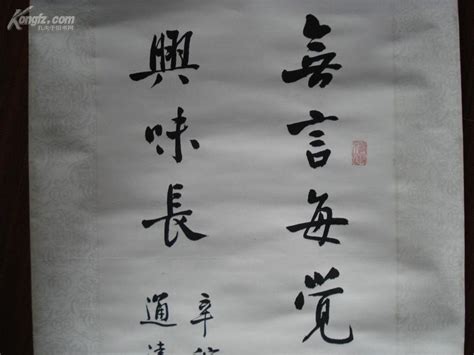 Kongfz.com
孔夫子旧书网
無言每覺
興味長
辛
通